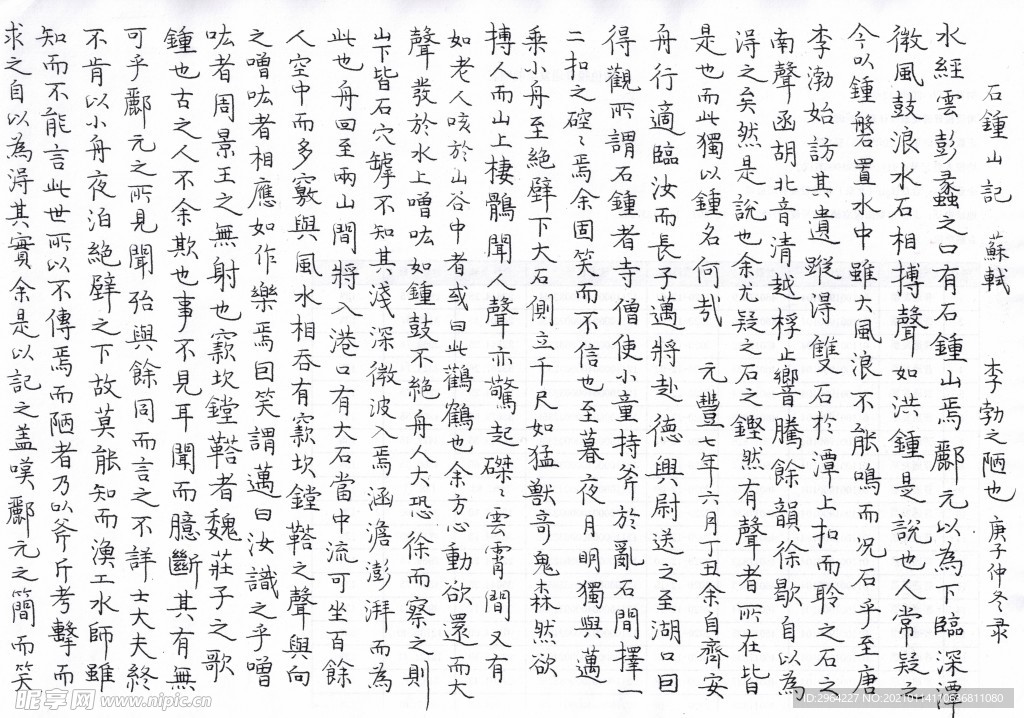 石鍾山記 蘇軾 李勃之陋也 庚子仲冬录
水經雲彭蠡之口有石鍾山焉酈元以為下臨深潭
微風鼓浪水石相搏聲如洪鍾是說也人常疑之
今以鍾磬置水中雖大風浪不能鳴而況石乎至唐
李渤始訪其遺蹤得雙石於潭上扣而聆之石之
南聲函胡北音清越桴止響騰餘韻徐歇自以為
得之矣然是說也余尤疑之石之鏗然有聲者所在皆
是也而此獨以鍾名何哉 元豐七年六月丁丑余自齊安
舟行適臨汝而長子邁將赴德興尉送之至湖口因
得觀所謂石鍾者寺僧使小童持斧於亂石間擇一
二扣之硿〻焉余固笑而不信也至暮夜月明獨與邁
乘小舟至絕壁下大石側立千尺如猛獸奇鬼森然欲
搏人而山上棲鶻聞人聲亦驚起磔〻雲霄間又有
如老人咳於山谷中者或曰此鸛鶴也余方心動欲還而大
聲發於水上噌吰如鍾鼓不絕舟人大恐徐而察之則
山下皆石穴罅不知其淺深微波入焉涵澹澎湃而為
此也舟回至兩山間將入港口有大石當中流可坐百餘
人空中而多竅與風水相吞有窾坎鏜鞳之聲與向
之噌吰者相應如作樂焉因笑謂邁曰汝識之乎噌
吰者周景王之無射也窾坎鏜鞳者魏莊子之歌
鍾也古之人不余欺也事不見耳聞而臆斷其有無
可乎酈元之所見聞殆與餘同而言之不詳士大夫終
不肯以小舟夜泊絕壁之下故莫能知而漁工水師雖
知而不能言此世所以不傳焉而陋者乃以斧斤考擊而
求之自以為得其實余是以記之蓋嘆酈元之簡而笑
昵享网 www.nipic.cn
ID:2964227 NO:20210114110636811080